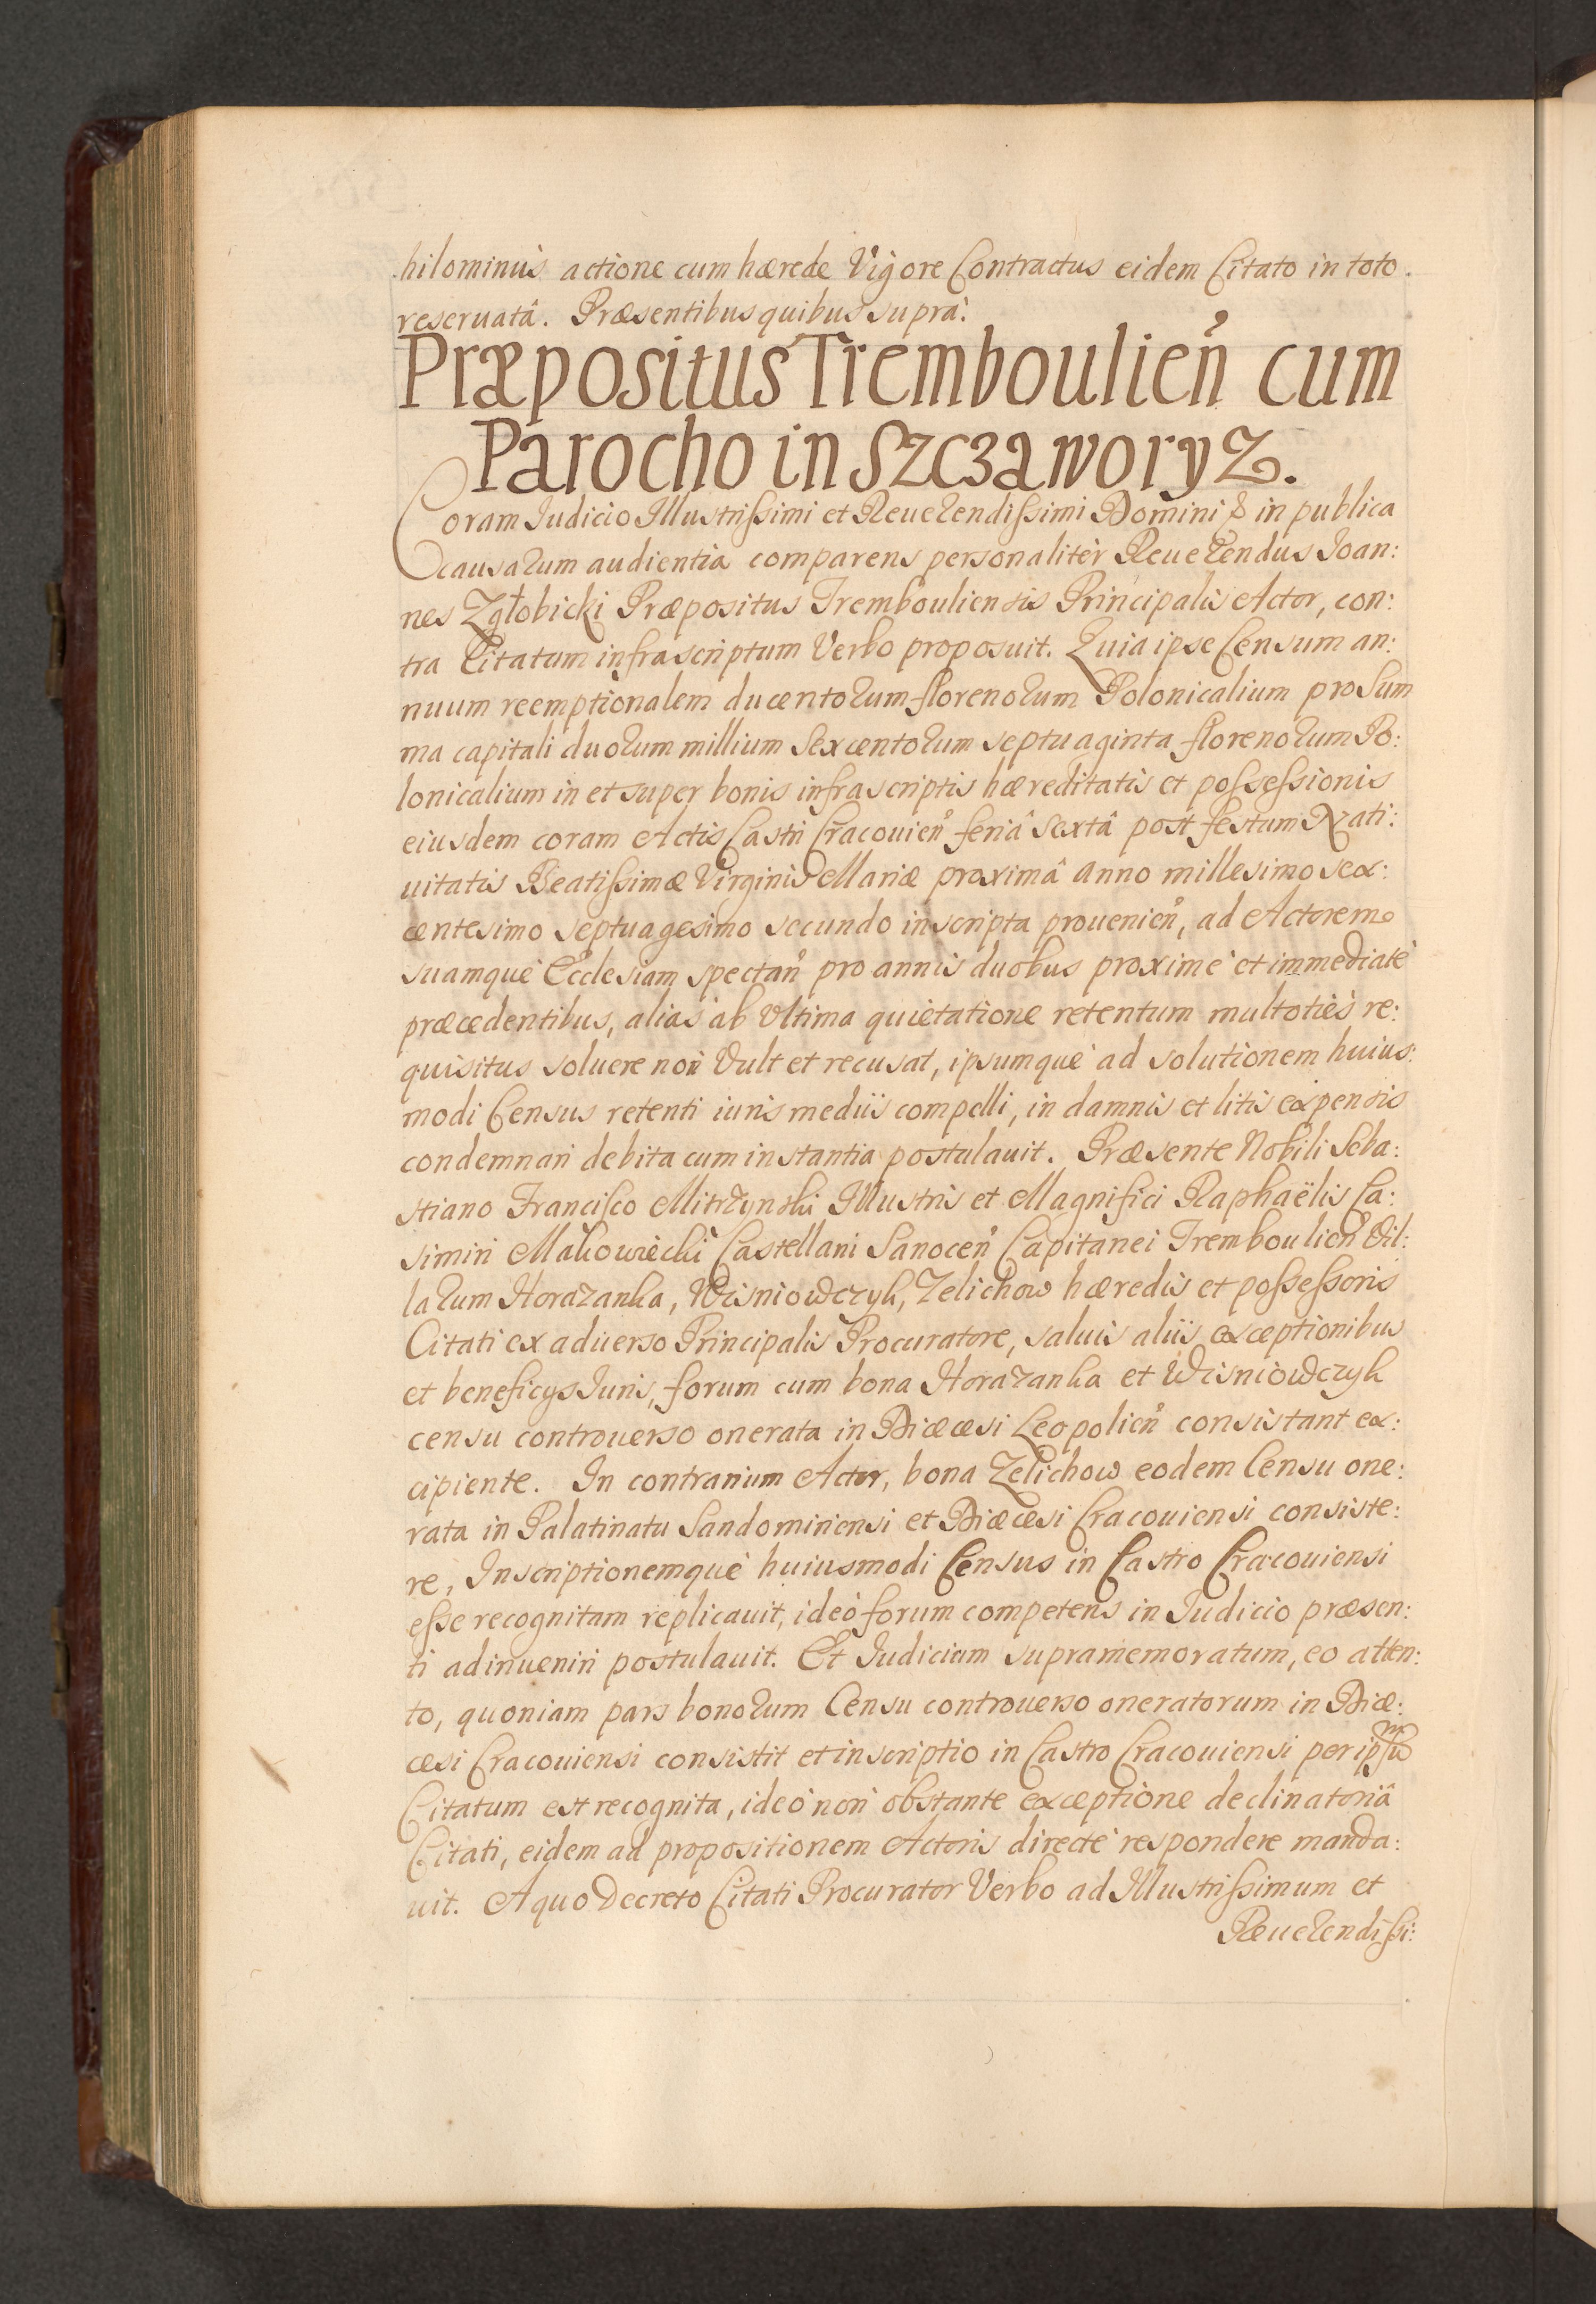 hilominus actione cum hærede Vigore Contractus eidem Citato in toto
reseruatâ. Præsentibus quibus suprà.
Præpositus Tremboulien̉ cum
Parocho in Szczaworyz.
Coram Iudicio Illustrissimi et Reuerendissimi Domini & in publica
causarum audientia comparens personalitèr Reuerendus Ioan:
nes Zgłobicki Præpositus Trembouliensis Principalis Actor, con:
tra Citatum infrascriptum Verbo proposuit. Quia ipse Censum an:
nuum reemptionalem ducentorum florenorum Polonicalium pro Sum
ma capitali duorum millium Sexcentorum septuaginta florenorum Po:
lonicalium in et super bonis infrascriptis hæreditatis et possessionis
eiusdem coram Actis Castri Cracouien̉ feriâ Sextâ post festum Nati:
uitatis Beatissimæ Virginis Mariæ proximâ anno millesimo sex:
centesimo septuagesimo secundo inscripta prouenien̉, ad Actorem
suamquè Ecclesiam spectan̉ pro annis duobus proximè et immediatè
præcedentibus, alias ab Vltima quietatione retentum multotiès re:
quisitus soluere non Vult et recusat, ipsumquè ad solutionem huius:
modi Census retenti iuris mediis compelli, in damnis et litis expensis
condemnari debita cum instantia postulauit. Præsente Nobili Seba:
stiano Francisco Mitrzynski Illustris et Magnifici Raphaëlis Ca:
simiri Makowiecki Castellani Sanocen̉ Capitanei Tremboulien̉ Vil:
larum Horazanka, Wisniowczyk, Zelichow hæredis et possessoris
Citati ex aduerso Principalis Procuratore, saluis aliis exceptionibus
et beneficys Iuris, forum cum bona Horazanka et Wisniowczyk
censu controuerso onerata in Diœcesi Leopolien̉ consistant ex:
cipiente. In contrarium Actor, bona Zelichow eodem Censu one:
rata in Palatinatu Sandomiriensi et Diœcesi Cracouiensi consiste:
re, Inscriptionemquè huiusmodi Census in Castro Cracouiensi
esse recognitam replicauit, ideò forum competens in Iudicio præsen:
ti adinueniri postulauit. Et Iudicium supramemoratum, eo atten:
to, quoniam pars bonorum Censu controuerso oneratorum in Diœ:
cesi Cracouiensi consistit et inscriptio in Castro Cracouiensi per ipsum
Citatum est recognita, ideò non obstante exceptione declinatoriâ
Citati, eidem ad propositionem Actoris directè respondere manda:
uit. A quo Decreto Citati Procurator Verbo ad Illustrissimum et
Reuerendissi: